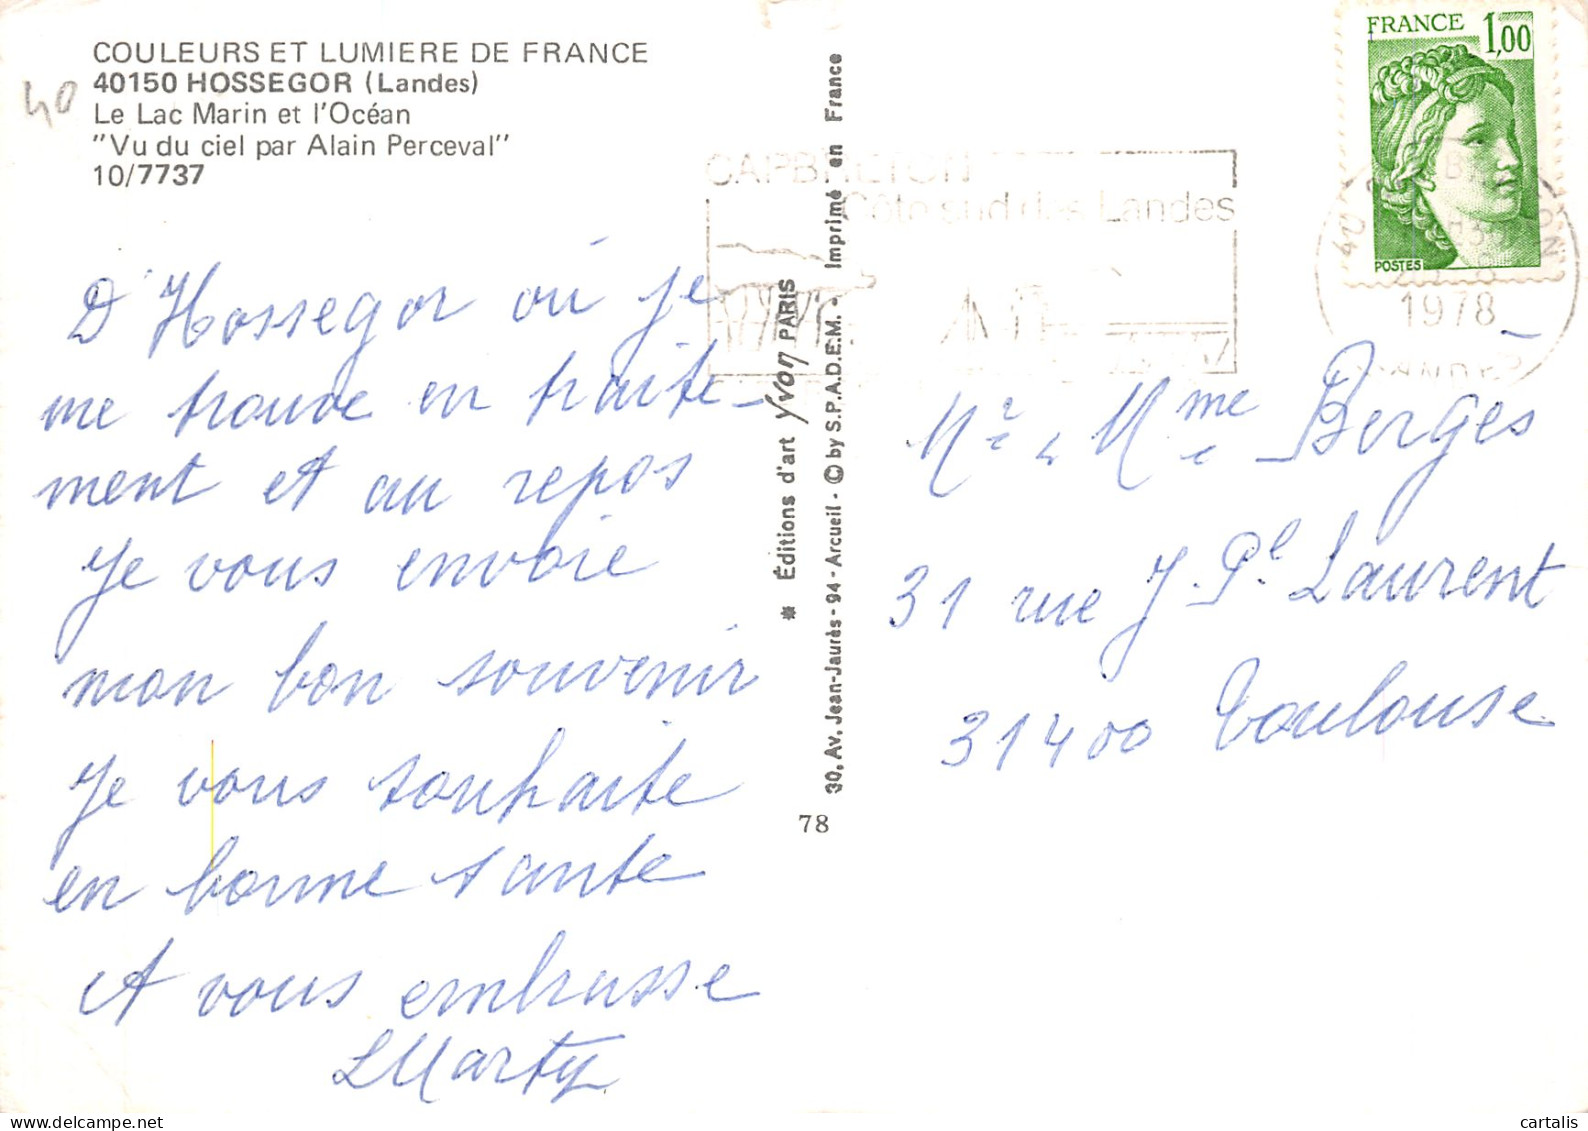 COULEURS ET LUMIERE DE FRANCE
40150 HOSSEGOR (Landes)
Le Lac Marin et l'Océan
"Vu du ciel par Alain Perceval"
10/7737
40
D'Hossegor où je
me trouve en traite-
ment et au repos
Je vous envoie
mon bon souvenir
Je vous souhaite
en bonne sante
et vous embrasse
LMarty
* Éditions d'art Yvon PARIS
30, Av. Jean-Jaurès - 94 - Arcueil - © by S.P.A.D.E.M. - Imprimé en France
78
CAPBRETON
Côte sud des Landes
FRANCE 1,00
POSTES
40 CAPBRETON
1978
LANDES
Mr & Mme Bergès
31 rue J. Pl Laurent
31400 Toulouse
delcampe.net
cartalis